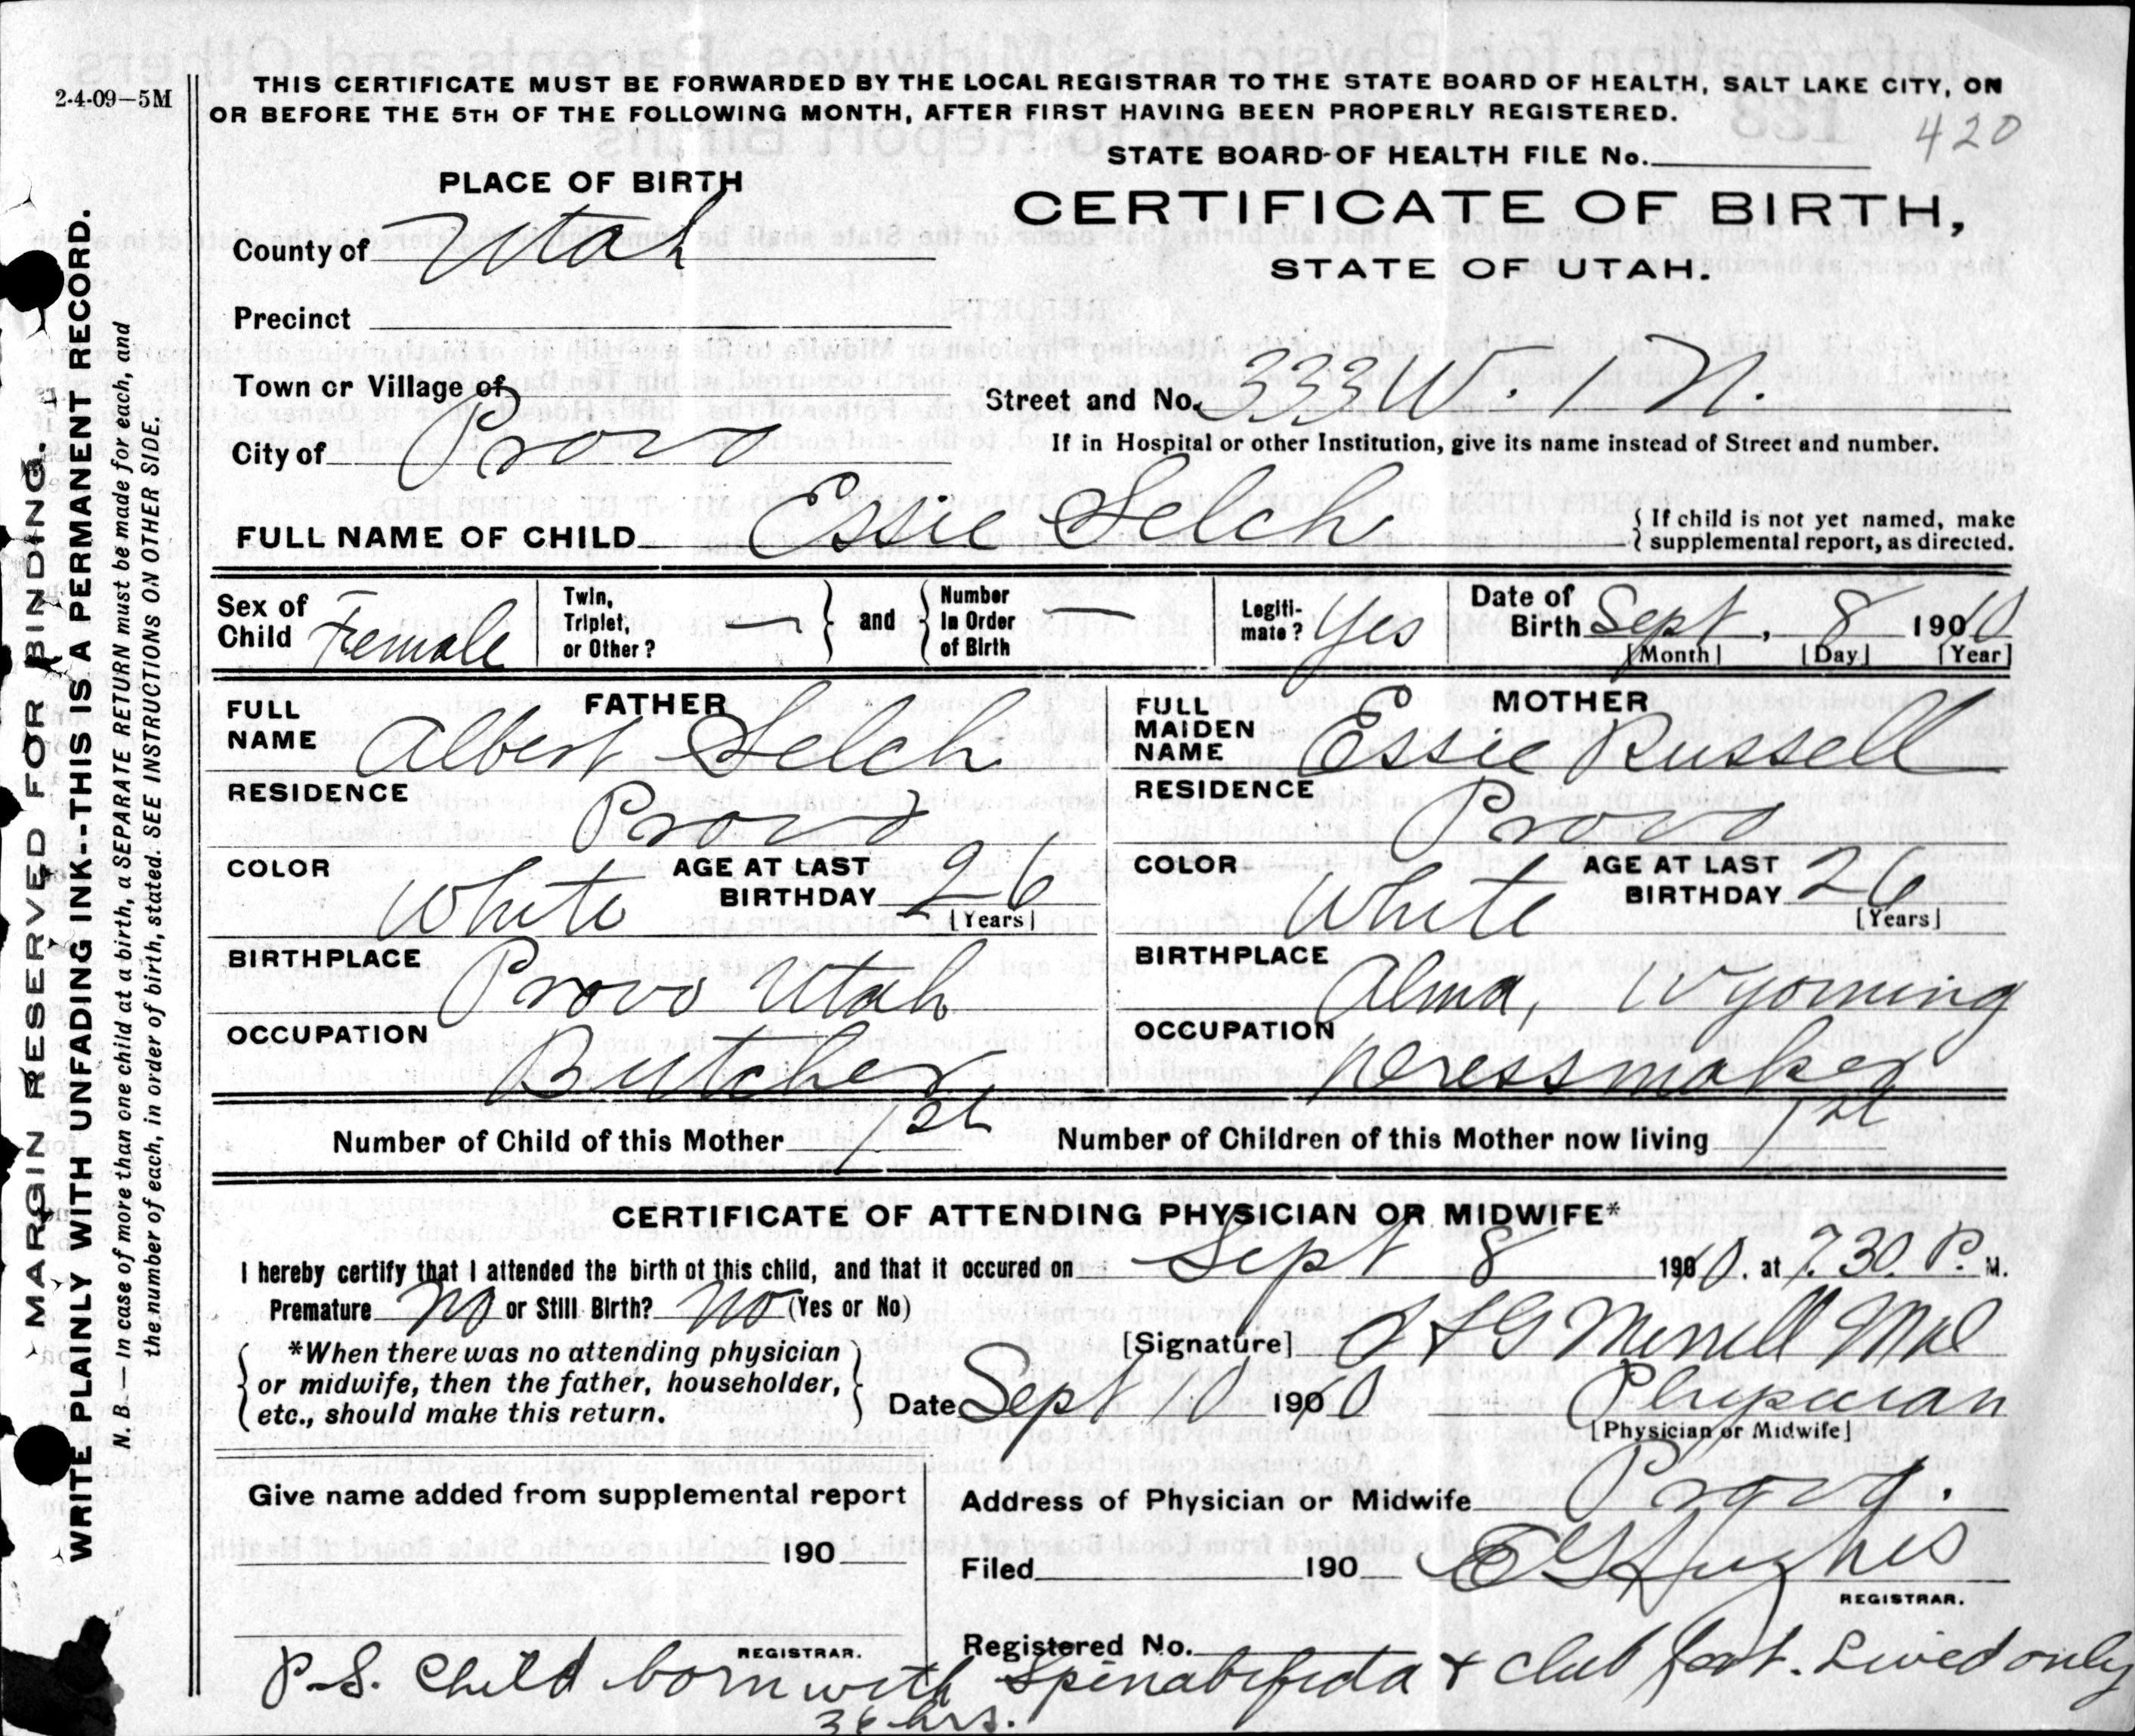 2-4-09—5M
THIS CERTIFICATE MUST BE FORWARDED BY THE LOCAL REGISTRAR TO THE STATE BOARD OF HEALTH, SALT LAKE CITY, ON
OR BEFORE THE 5TH OF THE FOLLOWING MONTH, AFTER FIRST HAVING BEEN PROPERLY REGISTERED.
420
STATE BOARD OF HEALTH FILE No.
PLACE OF BIRTH
CERTIFICATE OF BIRTH,
STATE OF UTAH.
County of Utah
Precinct
Town or Village of
Street and No. 333 W. 1 N.
If in Hospital or other Institution, give its name instead of Street and number.
City of Provo
FULL NAME OF CHILD Essie Selch
{ If child is not yet named, make
supplemental report, as directed.
Sex of Child Female
Twin, Triplet, or Other? — } and { Number In Order of Birth —
Legitimate? Yes
Date of Birth Sept, 8 1910
[Month] [Day] [Year]
FATHER
FULL NAME Albert Selch
RESIDENCE Provo
COLOR White AGE AT LAST BIRTHDAY 26
[Years]
BIRTHPLACE Provo Utah
OCCUPATION Butcher
MOTHER
FULL MAIDEN NAME Essie Russell
RESIDENCE Provo
COLOR White AGE AT LAST BIRTHDAY 26
[Years]
BIRTHPLACE Alma, Wyoming
OCCUPATION Dressmaker
Number of Child of this Mother 1st Number of Children of this Mother now living 1st
CERTIFICATE OF ATTENDING PHYSICIAN OR MIDWIFE*
I hereby certify that I attended the birth of this child, and that it occured on Sept 8 1910. at 7.30. P. M.
Premature No or Still Birth? No (Yes or No)
[Signature] Merrill Md
*When there was no attending physician
or midwife, then the father, householder,
etc., should make this return.
Date Sept 10 1910 Physician
[Physician or Midwife]
Give name added from supplemental report
190
REGISTRAR.
Address of Physician or Midwife Provo.
Filed 190 Hughes
REGISTRAR.
Registered No.
P.S. Child born with spinabifida & club foot. Lived only
36 hrs.
MARGIN RESERVED FOR BINDING.
WRITE PLAINLY WITH UNFADING INK--THIS IS A PERMANENT RECORD.
N. B.—In case of more than one child at a birth, a SEPARATE RETURN must be made for each, and
the number of each, in order of birth, stated. SEE INSTRUCTIONS ON OTHER SIDE.